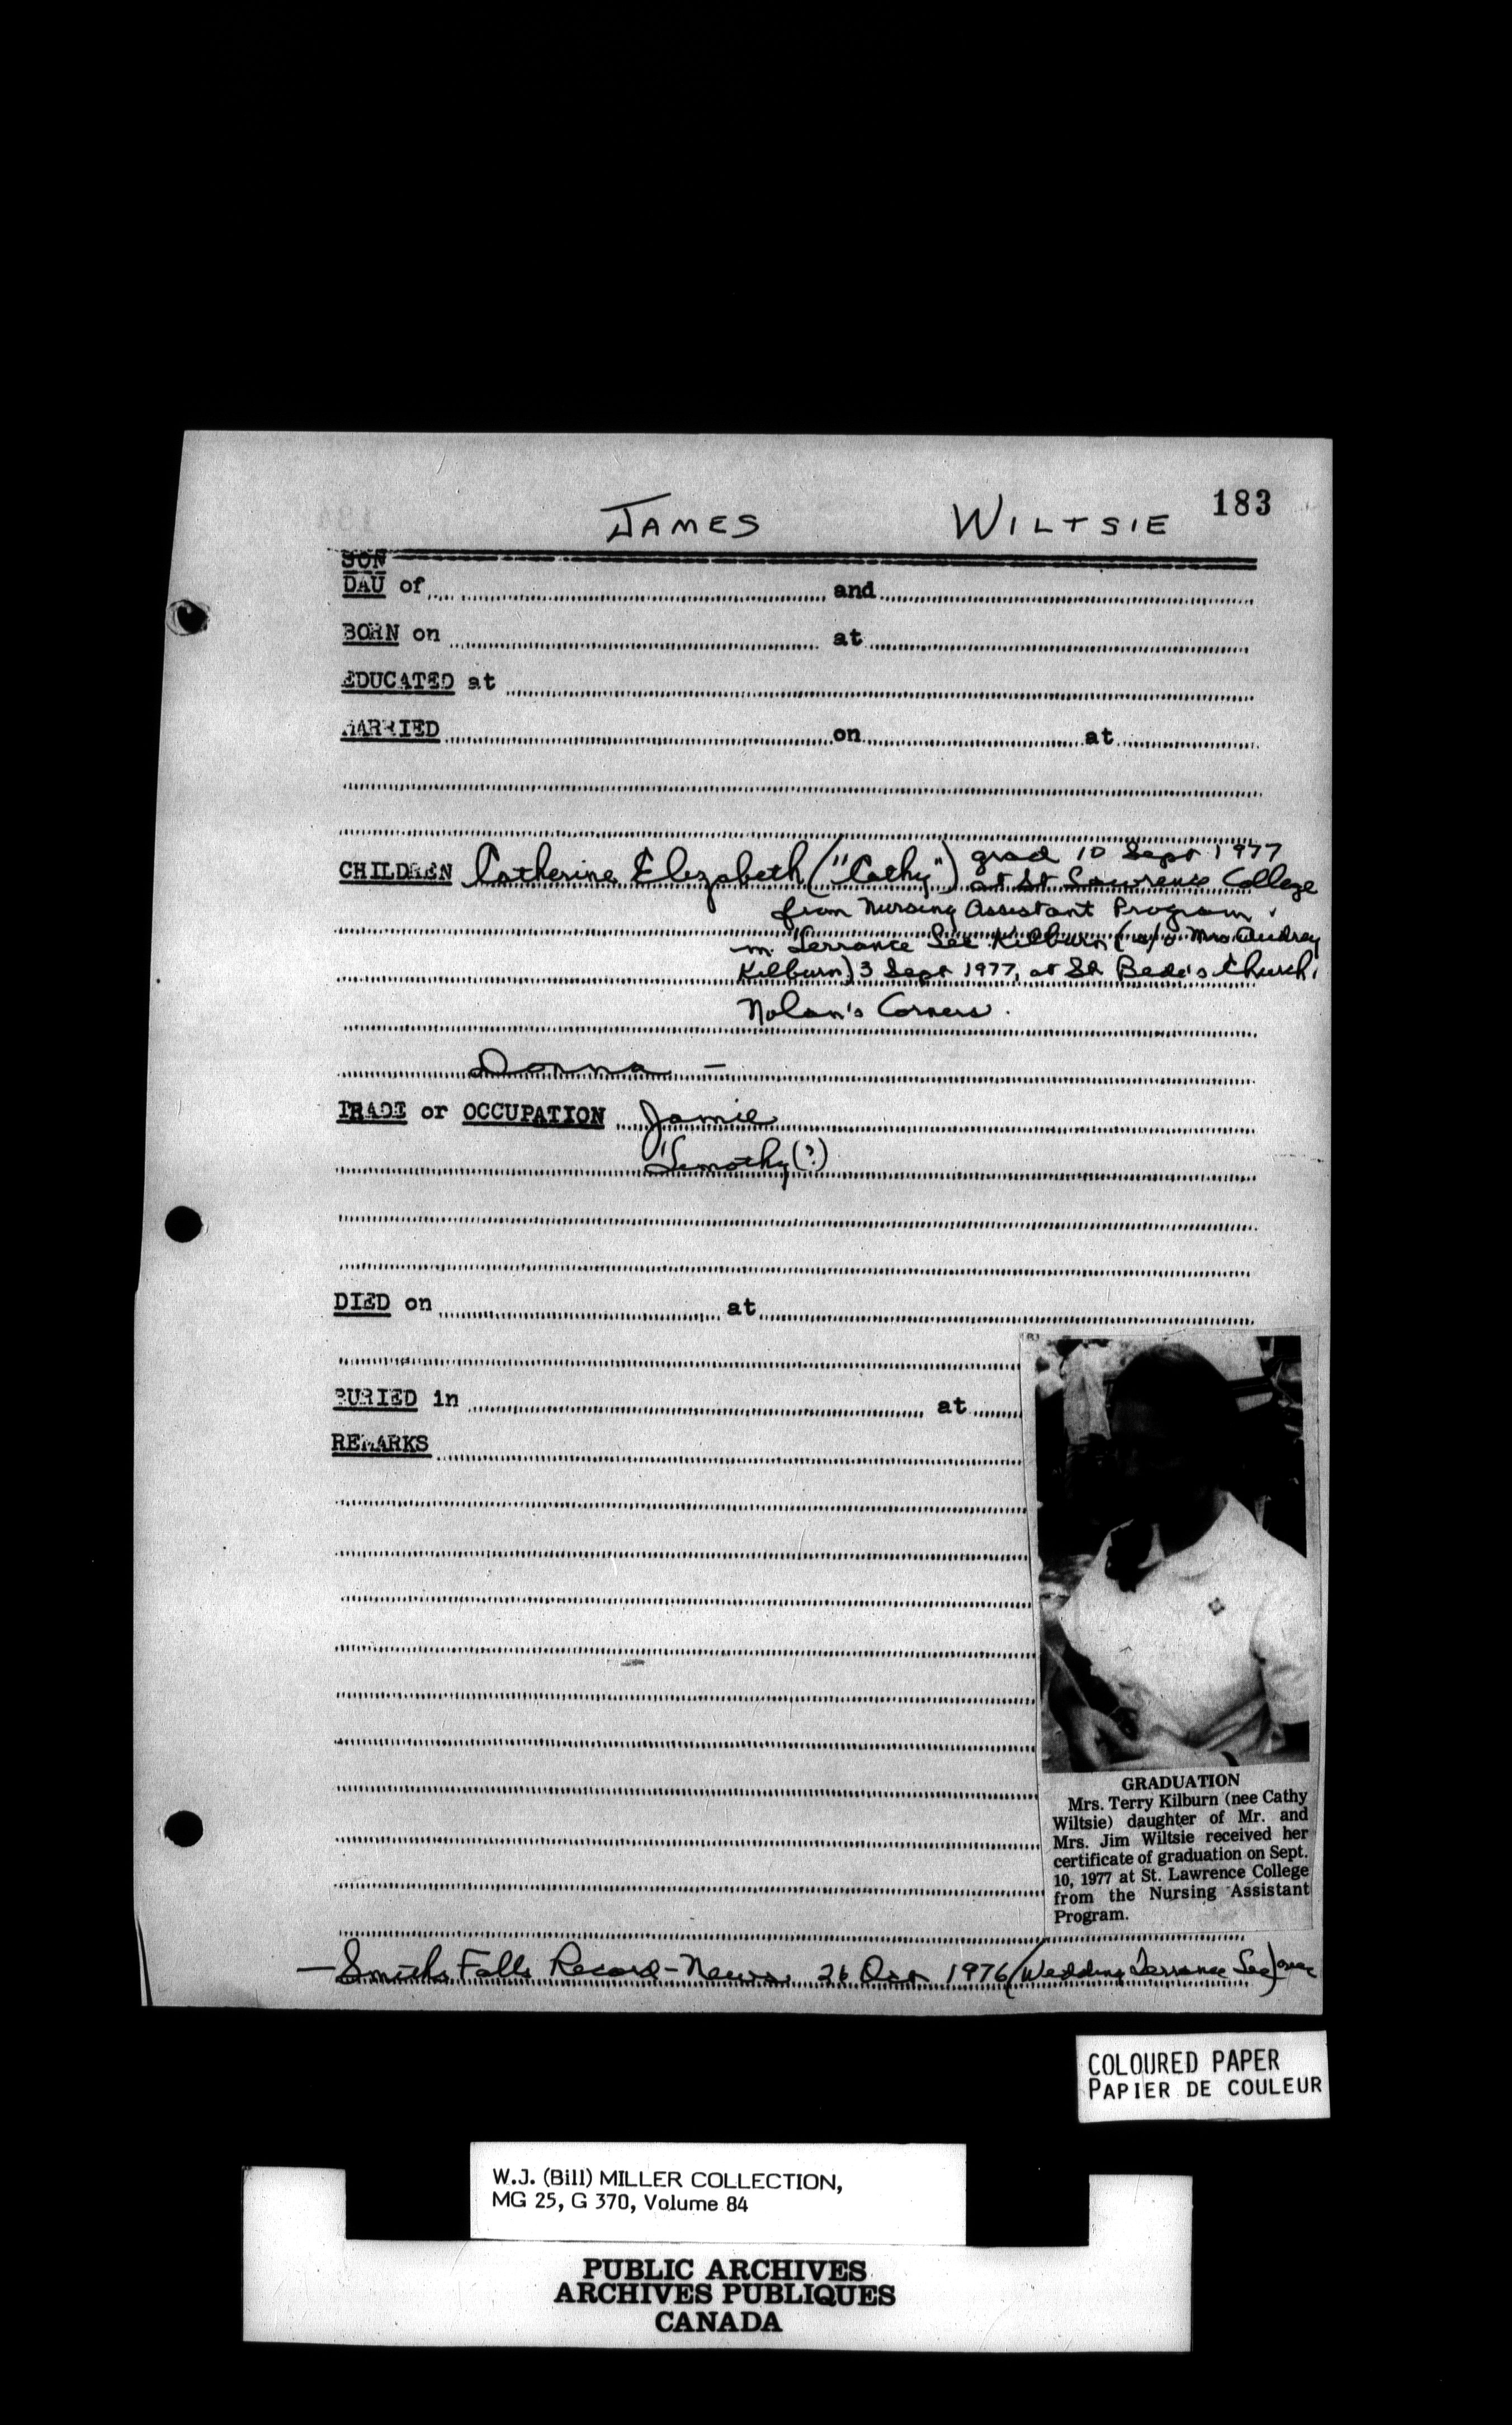 183
JAMES WILTSIE
SON
DAU of and
BORN on at
EDUCATED at
MARRIED on at
CHILDREN Catherine Elizabeth ("Cathy") grad 10 Sept 1977
at St Lawrence College
from Nursing Assistant Program.
m. Terrance Lee Kilburn (s/o Mrs Audrey
Kilburn) 3 Sept 1977, at St Bede's Church,
Nolan's Corners.
Donna –
TRADE or OCCUPATION Jamie
Timothy(?)
DIED on at
BURIED in at
REMARKS
GRADUATION
Mrs. Terry Kilburn (nee Cathy
Wiltsie) daughter of Mr. and
Mrs. Jim Wiltsie received her
certificate of graduation on Sept.
10, 1977 at St. Lawrence College
from the Nursing Assistant
Program.
– Smiths Falls Record-News 26 Oct 1976 (Wedding Terrance Lee)
COLOURED PAPER
PAPIER DE COULEUR
W.J. (Bill) MILLER COLLECTION,
MG 25, G 370, Volume 84
PUBLIC ARCHIVES
ARCHIVES PUBLIQUES
CANADA